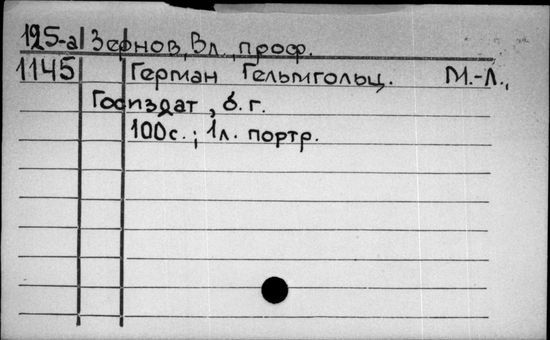 125-а Зернов, Вл., проф.
1145 Герман Гельмгольц. М.-Л.,
Госиздат, б. г.
100с.; 1л. портр.